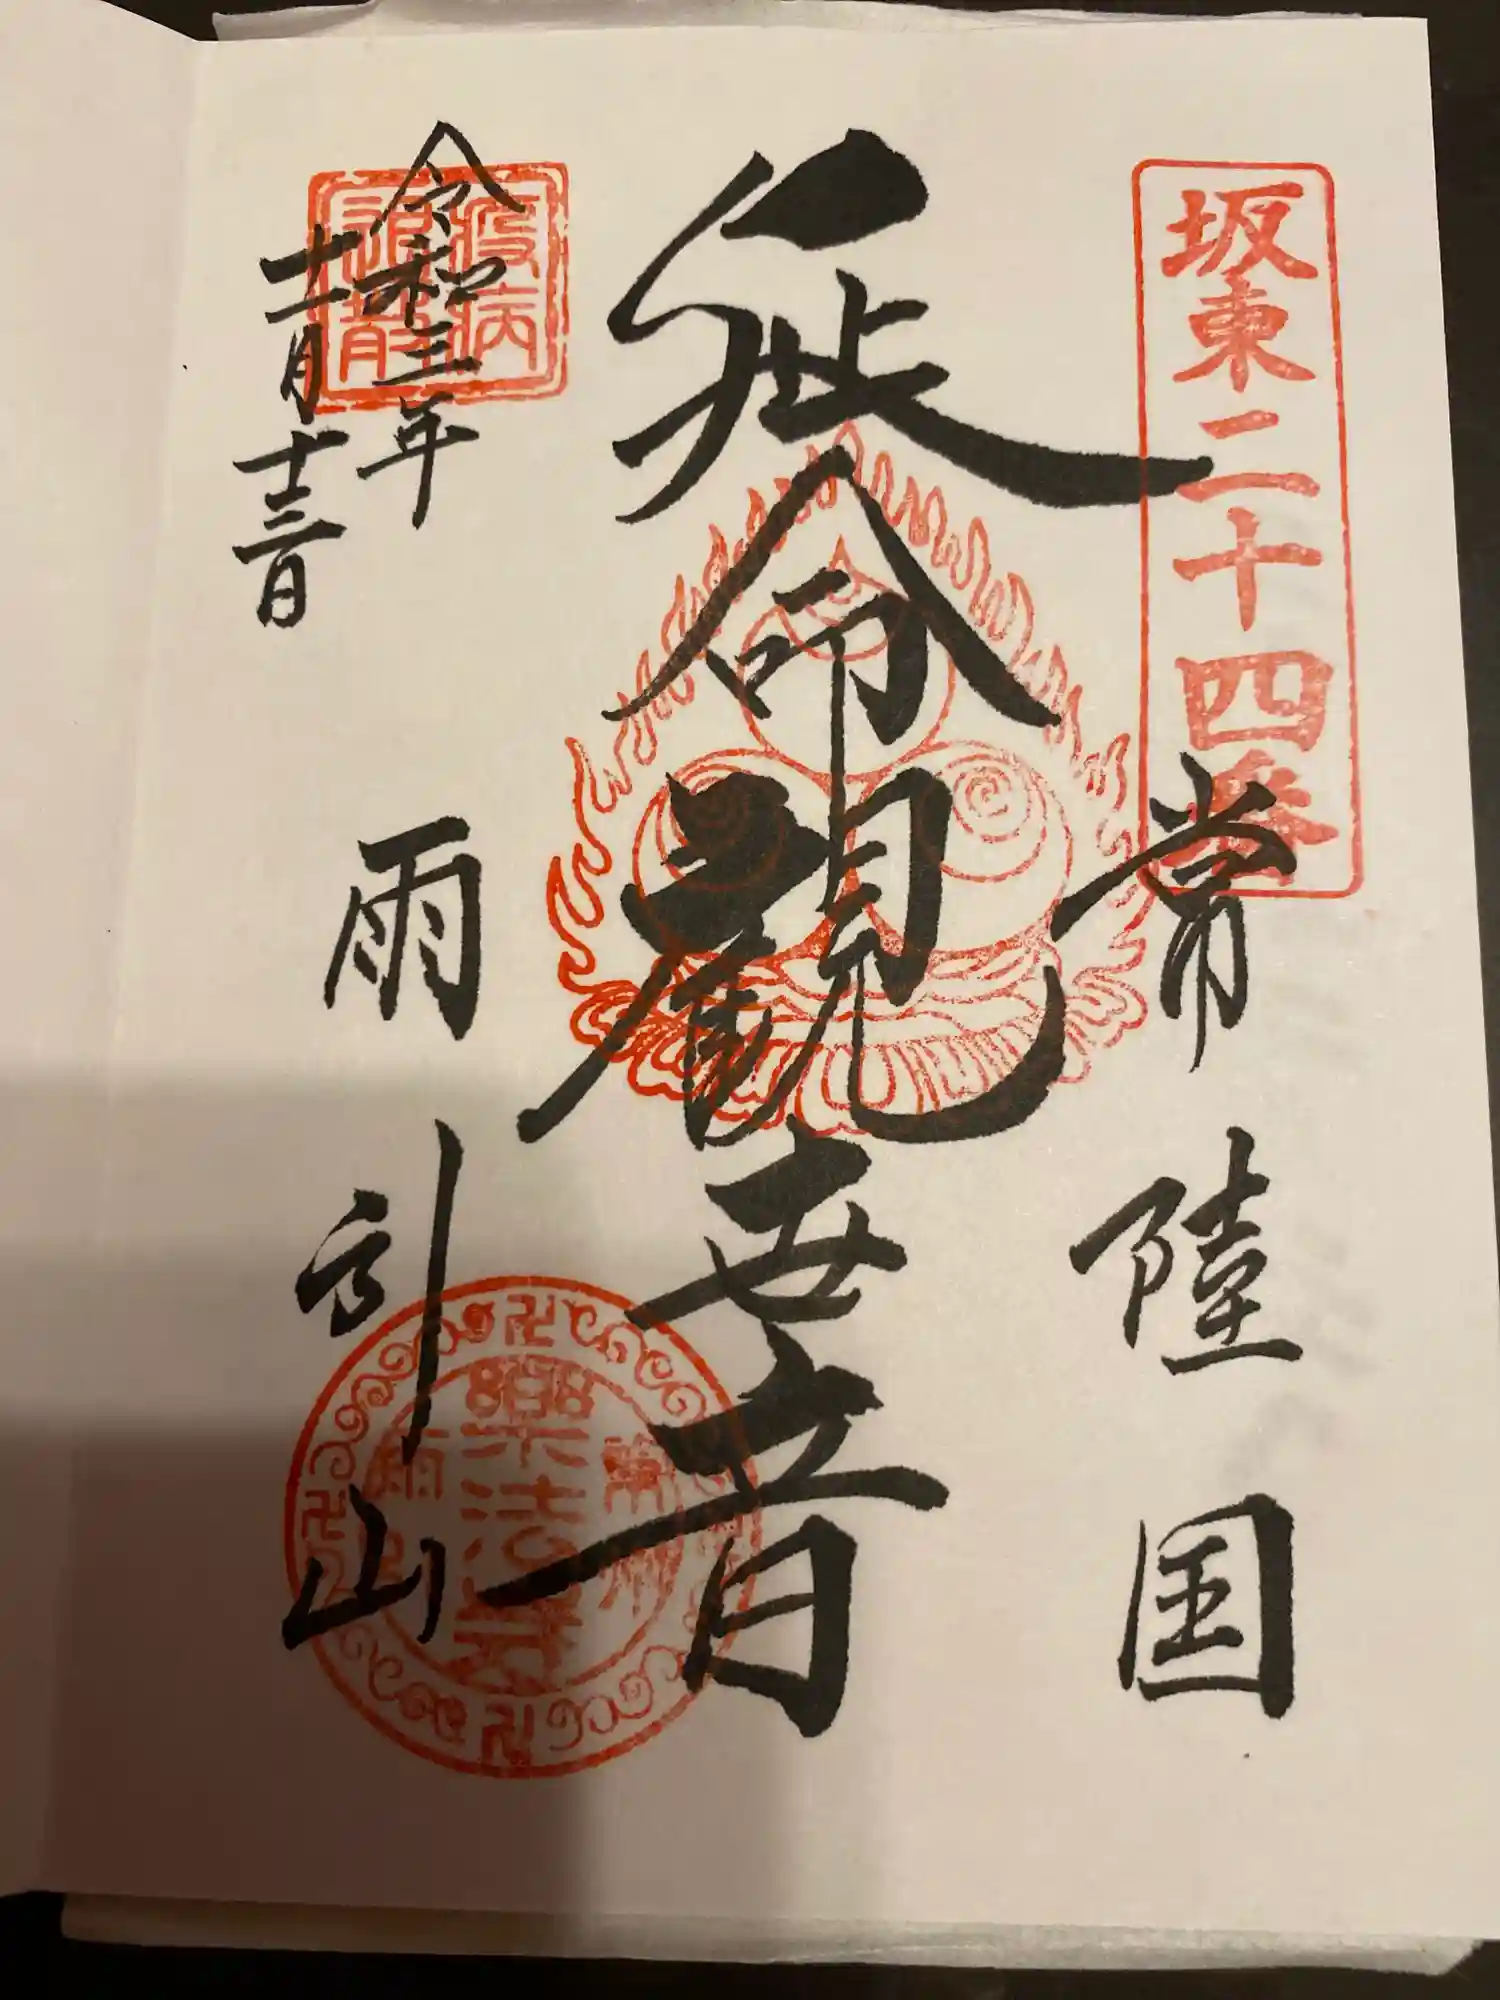 坂東二十四番
常陸国
延命観世音
令和三年
十一月十三日
疫病
退散
雨引山
常州
樂法寺
雨引